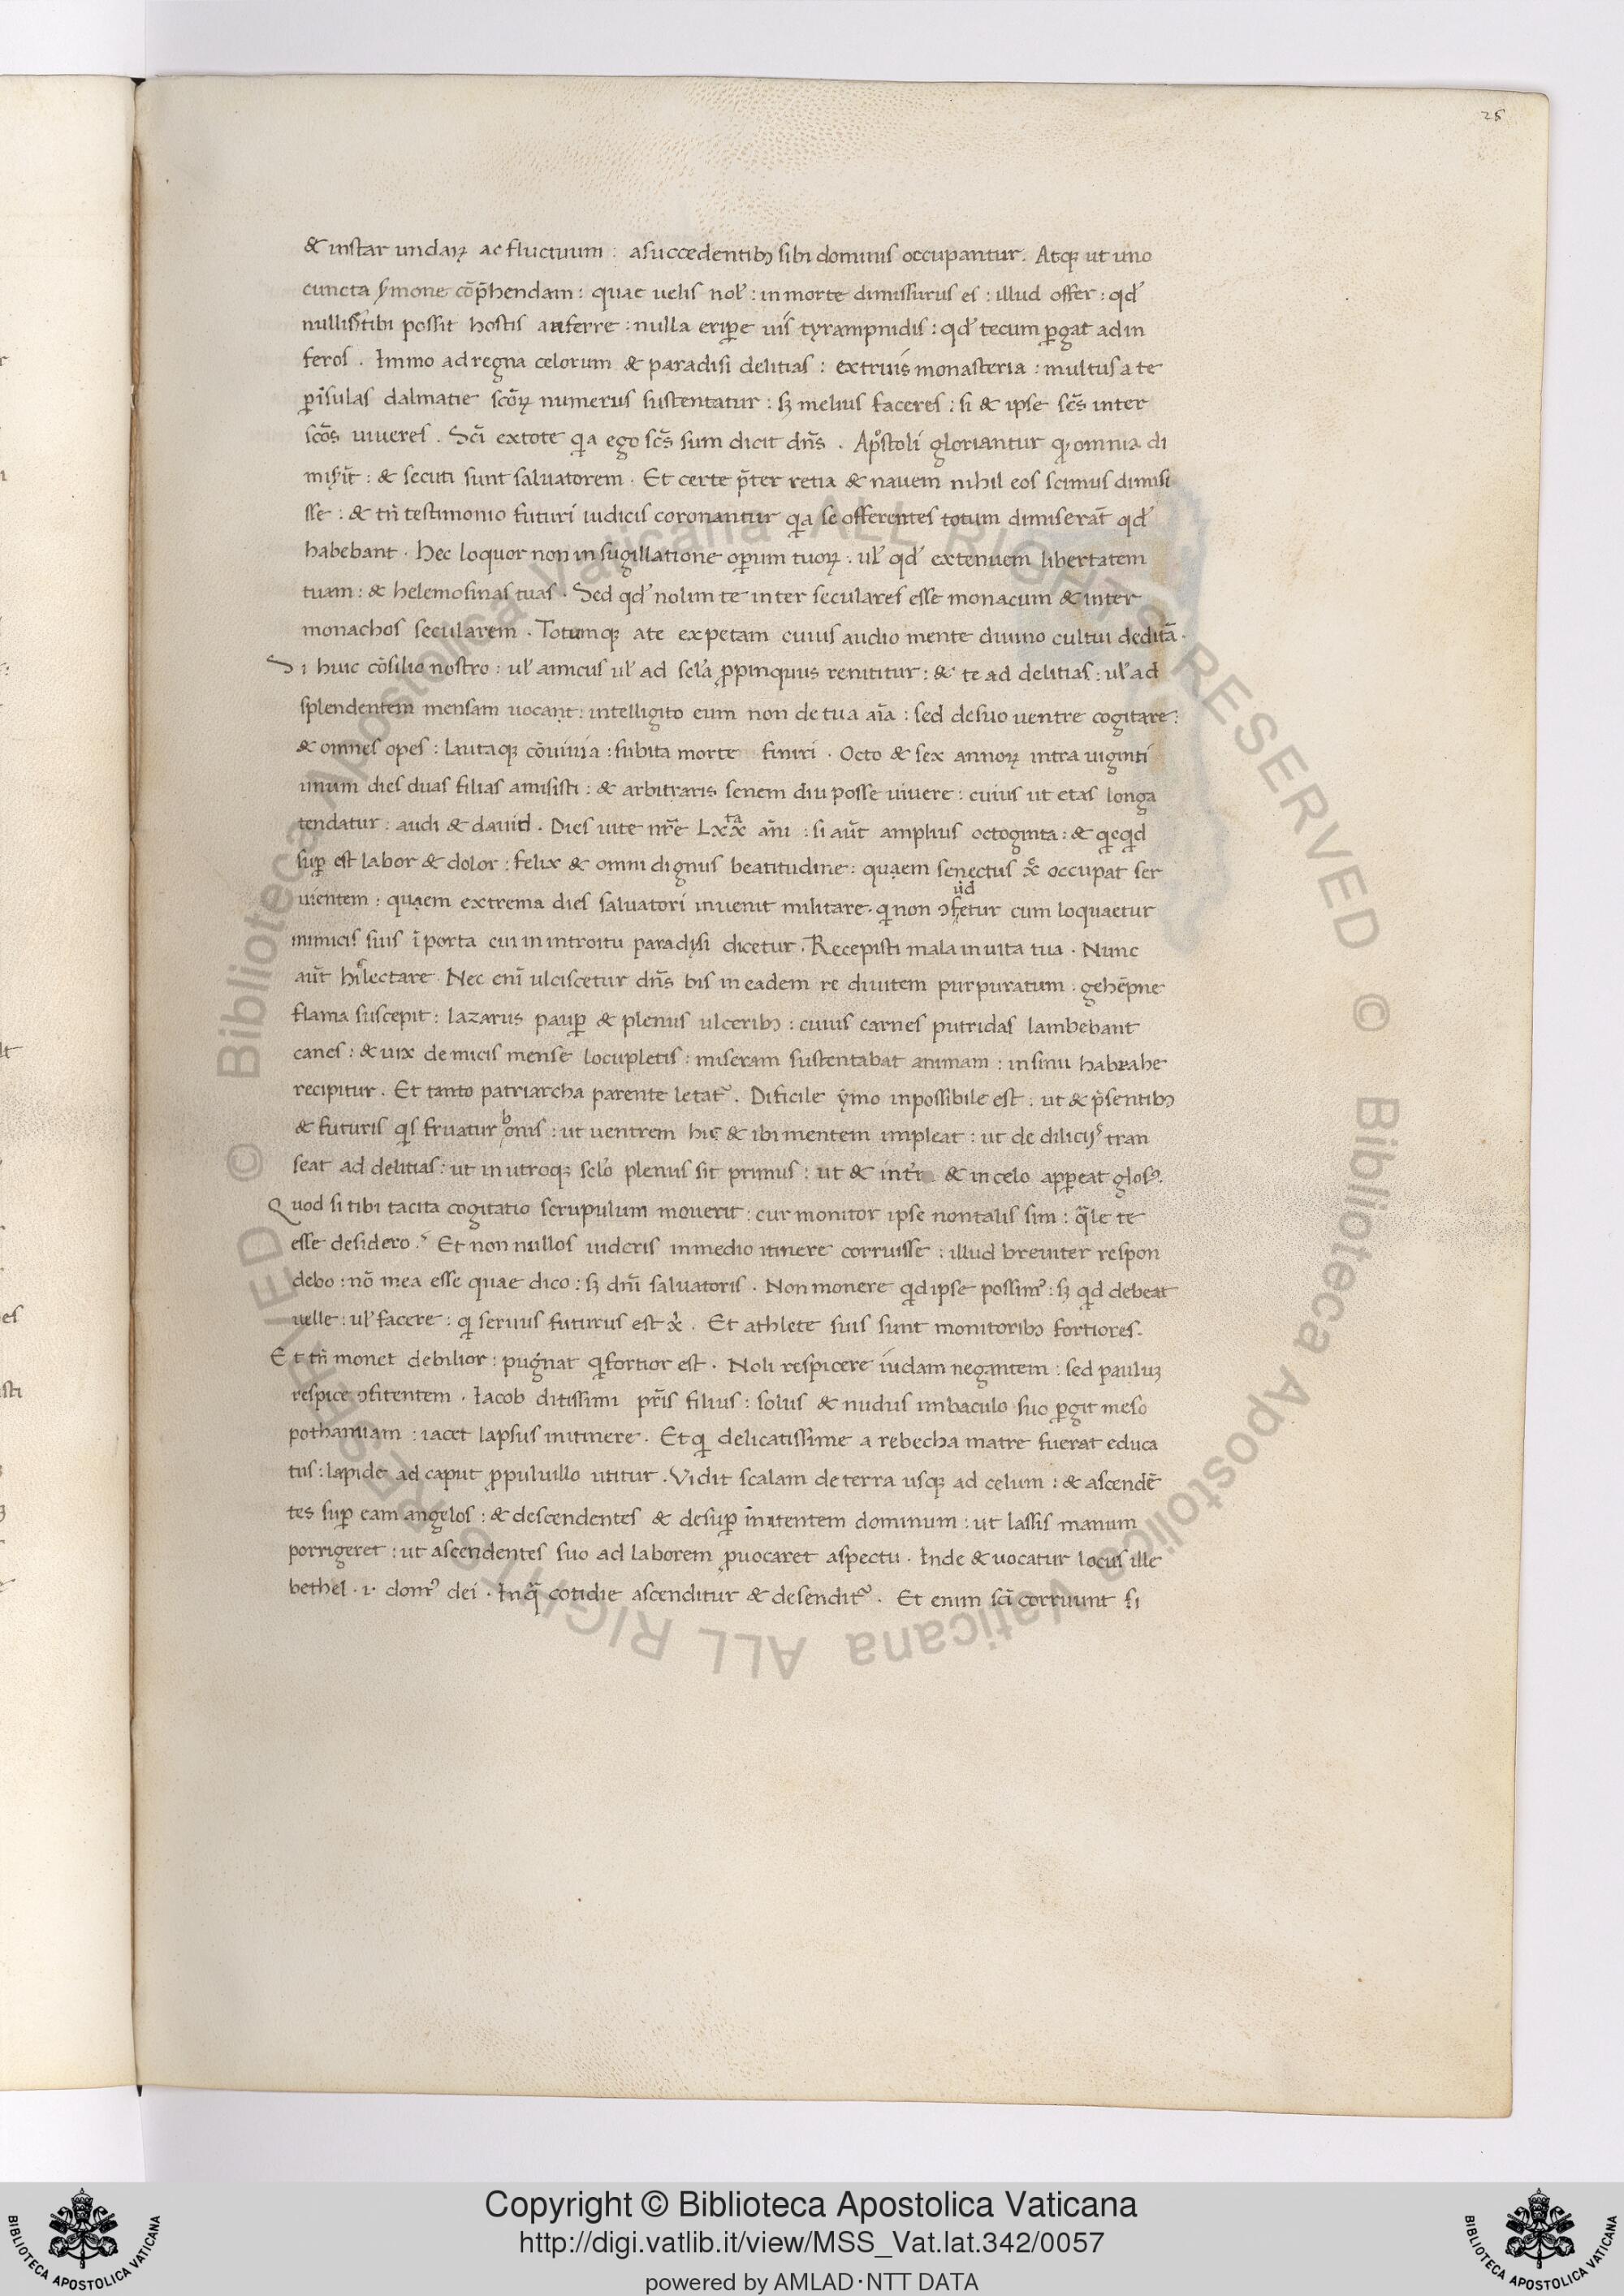 25
& instar undaꝝ ac fluctuum : asuccedentibꝫ sibi dominis occupantur . Atqꝫ ut uno
cuncta ẏmone cōp̄hendam : quae uelis nol̕ : inmorte dimissurus es : illud offer : qd̕
nullus tibi possit hostis auferre : nulla eripe uis tyrampnidis : qd̕ tecum ꝑgat adin
feros . Immo ad regna celorum & paradisi delitias : extruis monasteria : multus a te
ꝑ īsulas dalmatie scōꝝ numerus sustentatur : sꝫ melius faceres : si & ipse scs̄ inter
scōs uiueres . Sci̅ extote qa ego scs̄ sum dicit dn̄s . Apostoli gloriantur qꝫ omnia di
misȳt : & secuti sunt saluatorem . Et certe p̄ter retia & nauem nihil eos scimus dimisi
sse : & tn̄ testimonio futuri iudicis coronantur qa se offerentes totum dimiserāt qd̕
habebant . Hec loquor non in sugillatione oꝑum tuoꝝ : ul̕ qd̕ extenuem libertatem
tuam : & helemosinas tuas . Sed qd̕ nolim te inter seculares esse monacum & inter
monachos secularem . Totumqꝫ ate expetam cuius audio mente diuino cultui deditā .
Si huic cōsilio nostro : ul̕ amicus ul̕ ad sela ꝓpinquus renititur : & te ad delitias : ul̕ ad
splendentem mensam uocant : intelligito eum non de tua aīa : sed desuo uentre cogitare :
& omnes opes : lautaqꝫ cōuiuia : subita morte finiri . Octo & sex annoꝝ intra uiginti
unum dies duas filias amisisti : & arbitraris senem diu posse uiuere : cuius ut etas longa
tendatur : audi & dauid . Dies uite nr̄e Lxx̄ ta an̄i : si aūt amplius octoginta : & qcqd
suꝑ est labor & dolor : felix & omni dignus beatitudine : quaem senectus xc̄ occupat ser
uientem : quaem extrema dies saluatori inuenit militare . q non ɔfūdetur cum loquaetur
inimicis suis ī porta cui in introitu paradysi dicetur . Recepisti mala in uita tua . Nunc
aūt hi lectare . Nec enī ulciscetur dn̄s bis in eadem re diuitem purpuratum . gehēpne
flama suscepit : lazarus pauꝑ & plenus ulceribꝫ : cuius carnes putridas lambebant
canes : & uix de micis mense locupletis : miseram sustentabat animam : insinu habrahe
recipitur . Et tanto patriarcha parente letat᷑ . Dificile ẏmo inpossibile est : ut & p̄sentibꝫ
& futuris qs fruatur bonis : ut uentrem hic & ibi mentem impleat : ut de dilicijs tran
seat ad delitias : ut in utroqꝫ sel̕o plenus sit primus : ut & int̕ra & in celo appeat glos᷑ .
Quod si tibi tacita cogitatio scrupulum mouerit : cur monitor ipse nontalis sim : q̄le te
esse desidero . Et non nullos uideris inmedio itinere corruisse : illud breuiter respon
debo : nō mea esse quae dico : sꝫ dn̄i saluatoris . Non monere qd ipse possim᷒ : sꝫ qd debeat
uelle : ul̕ facere : q seruus futurus est x̄ . Et athlete suis sunt monitoribꝫ fortiores .
Et tn̄ monet debilior : pugnat q fortior est . Noli respicere iudam negantem : sed pauluꝫ
respice ɔfitentem . Iacob ditissimi pr̄is filius : solus & nudus inbaculo suo ꝑgit meso
pothamiam : iacet lapsus initinere . Et q delicatissime a rebecha matre fuerat educa
tus : lapide ad caput ꝓ puluillo utitur . Vidit scalam de terra usqꝫ ad celum : & ascendē
tes suꝑ eam angelos : & descendentes & desuꝑ initentem dominum : ut lassis manum
porrigeret : ut ascendentes suo ad laborem ꝓuocaret aspectu . Inde & uocatur locus ille
bethel . i . dom᷒ dei . Inq̄ cotidie ascenditur & desendit᷑ . Et enim sci̅ corruunt si
© Biblioteca Apostolica Vaticana ALL RIGHTS RESERVED © Biblioteca Apostolica Vaticana ALL RIGHTS RESERVED
Copyright © Biblioteca Apostolica Vaticana
http://digi.vatlib.it/view/MSS_Vat.lat.342/0057
powered by AMLAD·NTT DATA
BIBLIOTECA APOSTOLICA VATICANA
BIBLIOTECA APOSTOLICA VATICANA